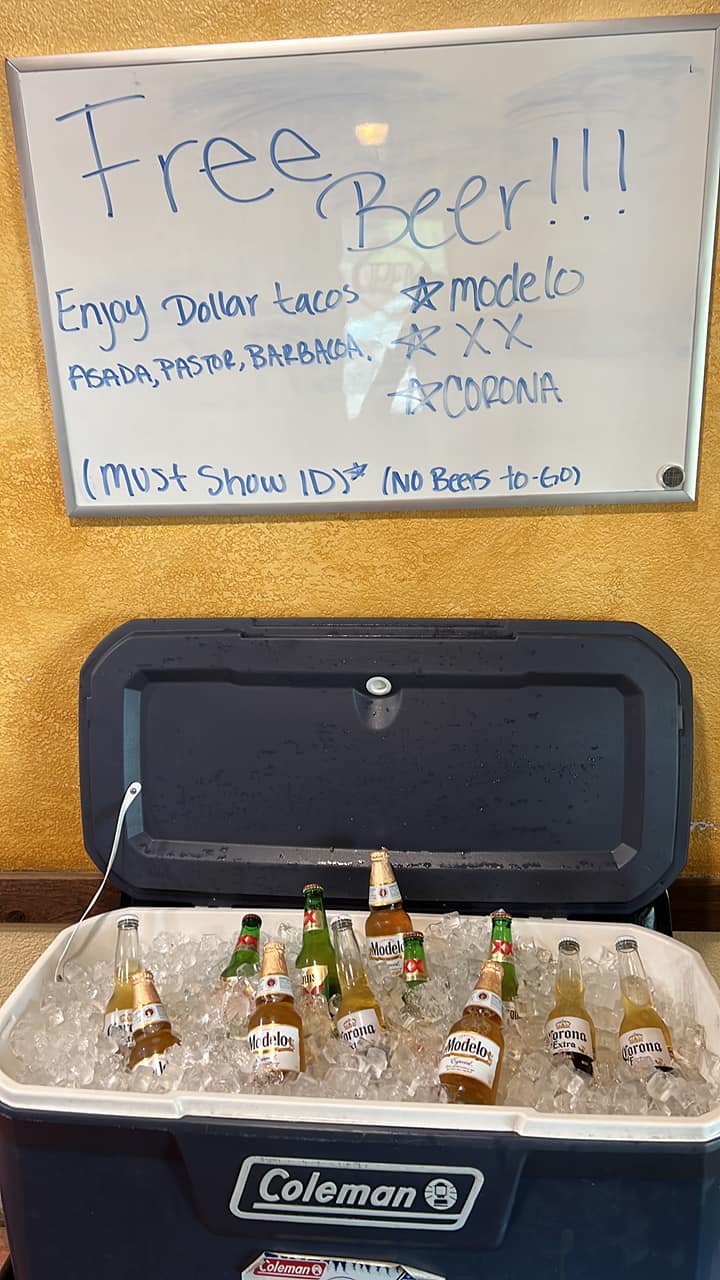 Free
Beer!!!
Enjoy Dollar tacos
ASADA, PASTOR, BARBACOA.
☆ modelo
☆ XX
☆ CORONA
(Must Show ID)* (NO Beers to-GO)
XX
XX
Modelo
XX
XX
Modelo
Corona
Modelo
Especial
Corona
Extra
Corona
Coleman
Coleman